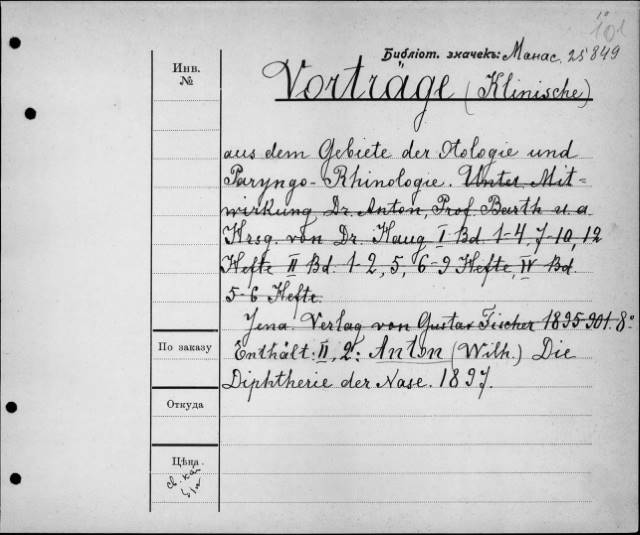 101
Библіот. значекъ: Манас. 25849
Инв.
№
Vorträge (Klinische)
aus dem Gebiete der Otologie und
Paryngo-Rhinologie. Unter Mit=
wirkung Dr. Anton, Prof Barth u. a.
Hrsg. von Dr. Haug I Bd. 1-4, 7-10, 12
Hefte II Bd. 1-2, 5, 6-9 Hefte, IV Bd.
5-6 Hefte.
Jena. Verlag von Gustav Fischer 1895-901. 8°
По заказу
Enthält: II, 2: Anton (Wilh.) Die
Diphtherie der Nase. 1897.
Откуда
Цѣна